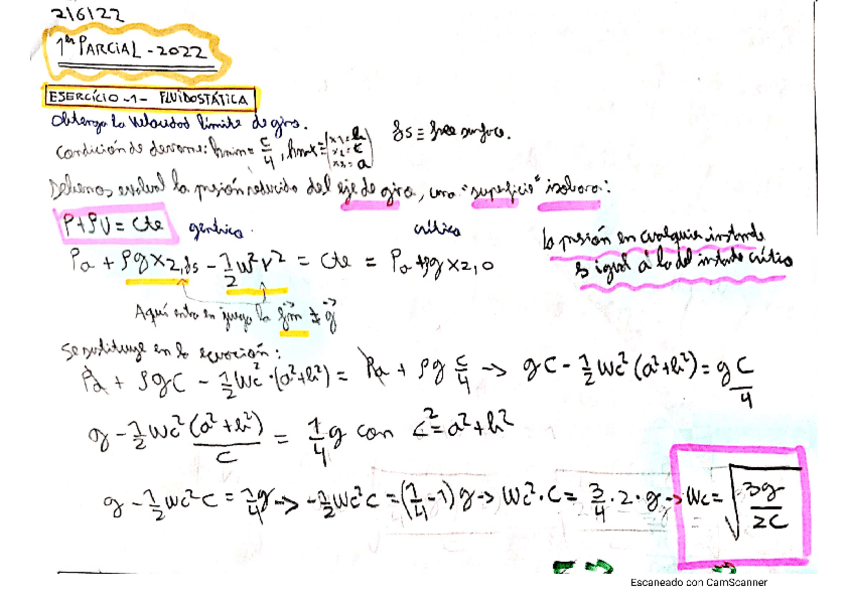 2/6/22
1er PARCIAL - 2022
EJERCÍCIO -1- FLUIDOSTÁTICA
Obtenga la velocidad límite de giro.
Condición de derrame: hmin = c/4, hmax = (x1 = b, x2 = c, x3 = a) fs ≡ free surface.
Debemos evaluar la presión reducida del eje de giro, una "superficie" isobara:
P+ρU = Cte genérica. crítica
Pa + ρg x2,fs - 1/2 w² r² = Cte = Pa + ρg x2,0
la presión en cualquier instante
es igual a la del instante crítico
Aquí entra en juego la fm ≠ g
Se sustituye en la ecuación:
Pa + ρgc - 1/2 wc² · (a²+b²) = Pa + ρg c/4 → gc - 1/2 wc² (a²+b²) = g c/4
g - 1/2 wc² (a²+b²)/c = 1/4 g con c² = a²+b²
g - 1/2 wc² c = 1/4 g → -1/2 wc² c = (1/4 - 1) g → wc² · c = 3/4 · 2 · g → wc = √(3g/2c)
Escaneado con CamScanner